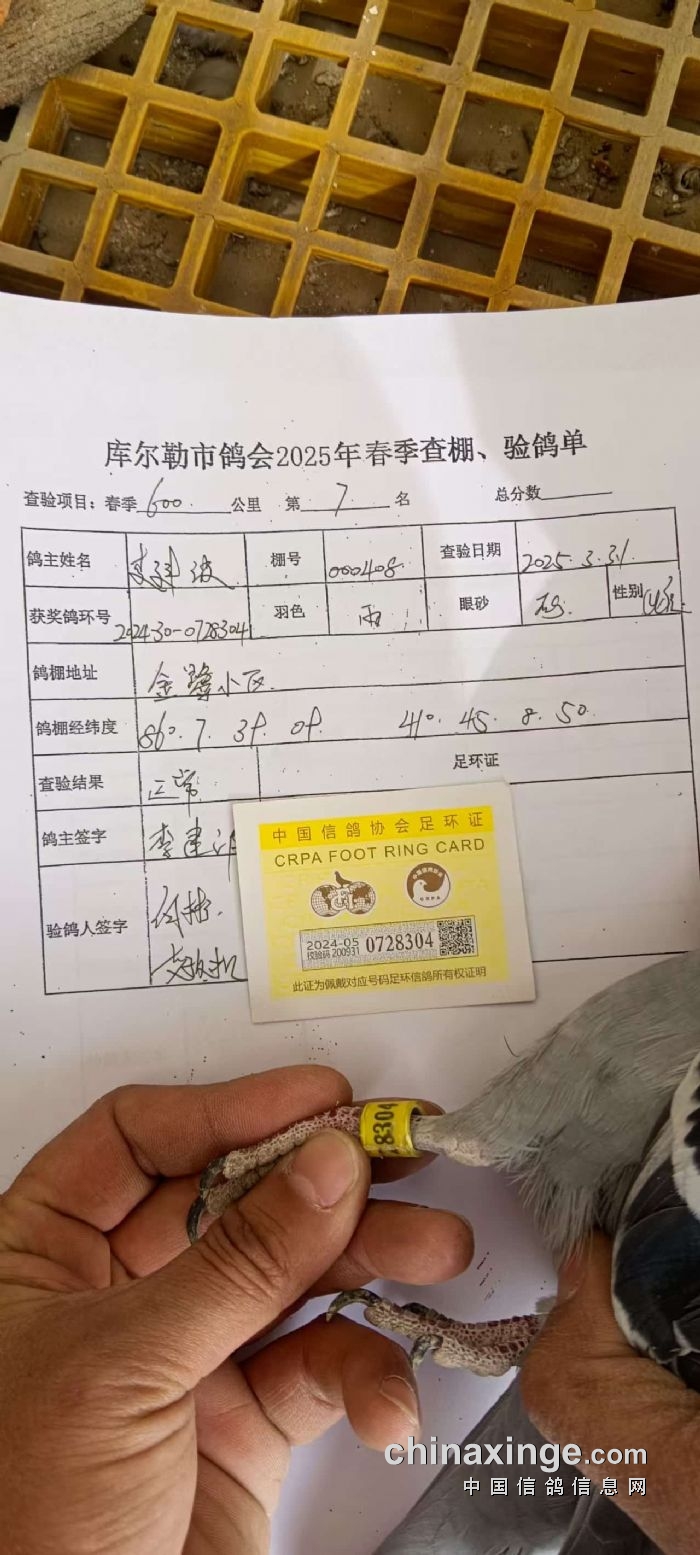 库尔勒市鸽会2025年春季查棚、验鸽单
查验项目：春季 600 公里 第 7 名 总分数
鸽主姓名 李建波 棚号 000408 查验日期 2025.3.31.
获奖鸽环号 2024-30-0728304 羽色 雨 眼砂 砂 性别
鸽棚地址 金鹭小区
鸽棚经纬度 86°. 7. 41°. 45. 8. 50.
查验结果 正常 足环证
鸽主签字 李建
验鸽人签字
中国信鸽协会足环证
CRPA FOOT RING CARD
中国信鸽协会
CRPA
2024-05 0728304
校验码 200931
此证为佩戴对应号码足环信鸽所有权证明
8304
chinaxinge.com
中国信鸽信息网